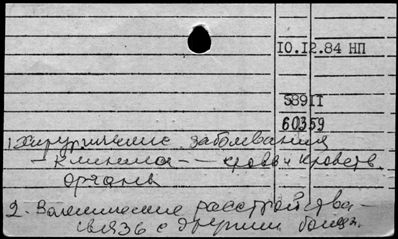 10.12.84 НП
S8911
60359
1. Хирургические заболевания
— клиника — кровь и кроветв.
органы
2. расстройства —
связь с другими болезн.